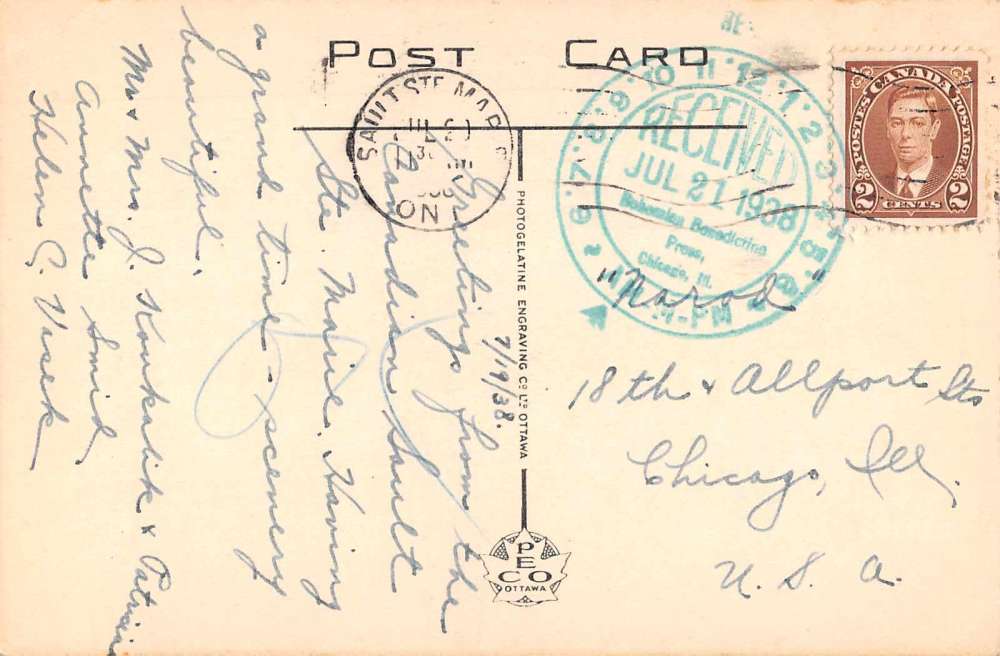 POST CARD
7/19/38.
Greetings from the
Canadian Sault
Ste. Marie. Having
a grand time - scenery
beautiful.
Mr & Mrs. J. Koukalik & Patricia
Annette Smid
Helen C. Vasek
PHOTOGELATINE ENGRAVING CO LTD OTTAWA
PECO
OTTAWA
SAULT STE MARIE
JUL
ONT
RECEIVED
JUL 21 1938
Bohemian Benedictine
Press,
Chicago, Ill.
7 8 9 10 11 12 1 2 3
CANADA
POSTES POSTAGE
2 CENTS 2
"Narod"
18th & Allport Sts
Chicago, Ill.
U. S. A.